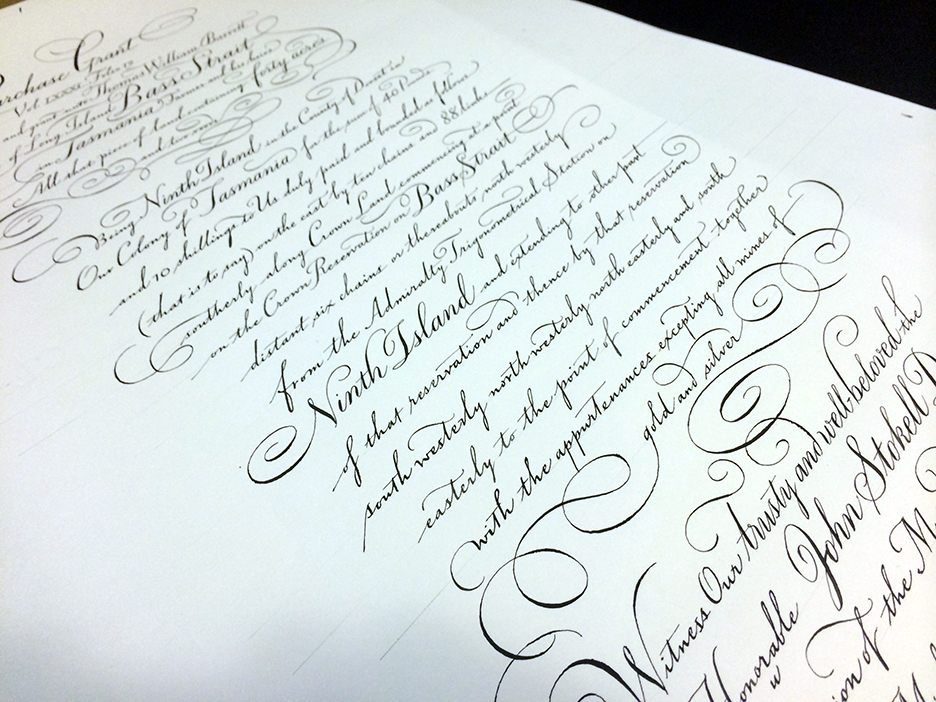 Purchase Grant
Vol LXXXI Folio 12
and grant unto Thomas William Barrett
of Long Island Bass Strait
in Tasmania Farmer and his heirs
All that piece of land containing forty acres
and two roods
Being Ninth Island in the County of Dorset in
Our Colony of Tasmania for the sum of 40 Pounds
and 10 shillings to Us duly paid and bounded as follows
(that is to say) on the east by ten chains and 88 links
southerly along Crown Land commencing at a point
on the Crown Reservation on Bass Strait
distant six chains or thereabouts north westerly
from the Admiralty Trigonometrical Station on
Ninth Island and extending to other point
of that reservation and thence by that reservation
south westerly north westerly north easterly and south
easterly to the point of commencement together
with the appurtenances excepting all mines of
gold and silver
Witness Our trusty and well-beloved the
Honorable John Stokell
ion of the